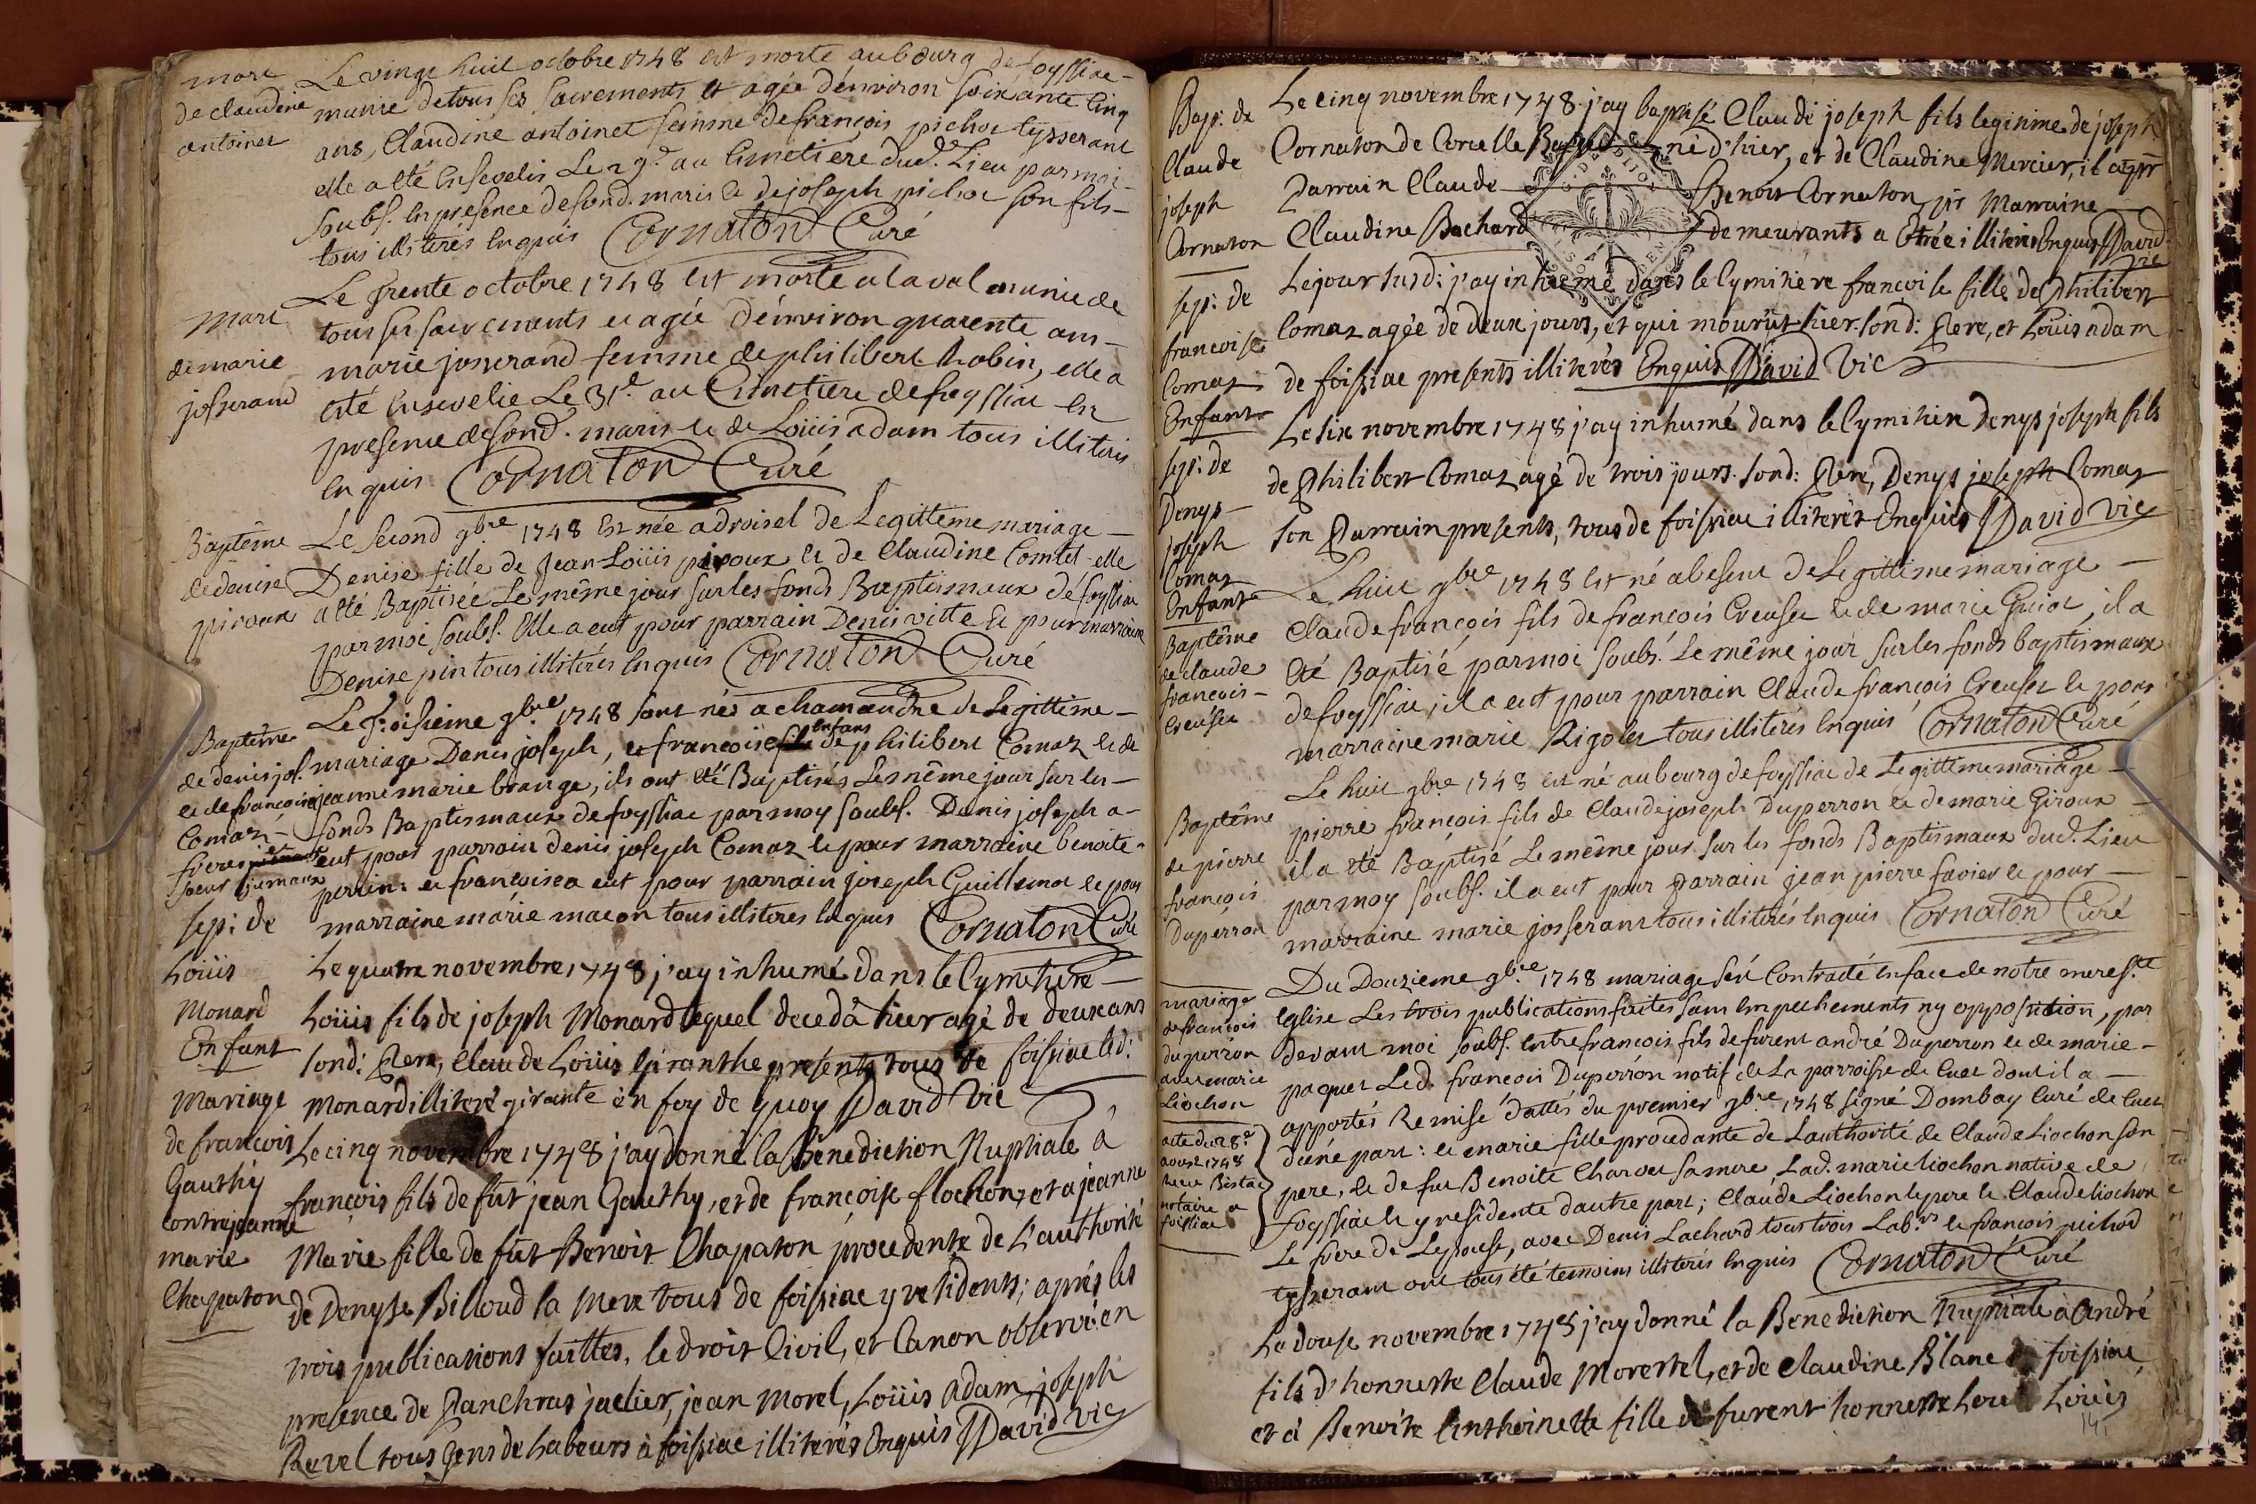 mort
de claudine
antoinet
Le vingt huit octobre 1748 est morte au bourg de foyssiac
munie de tous ses sacrements et agée d'environ soixante cinq
ans, Claudine antoinet femme de françois pichot tysserant
elle a êté ensevelie Le 29e au Cimetiére dud. Lieu par moi
soubs. en presence de sond. maris et de joseph pichot son fils
tous illiterés enquis Cornaton Curé
mort
de marie
josserand
Le trente octobre 1748 est morte a laval munie de
tous ses sacrements et agée d'environ quarente ans
marie josserand femme de philibert Robin, elle a
êté ensevelie Le 31e au Cimetiere de foyssiac en
presence de sond. maris et de Loüis adam tous illiterés
enquis Cornaton Curé
Baptême
de denise
piroux
Le second 9bre 1748 Est née a droisel de Legittême mariage
Denise fille de Jean-Loüis piroux et de Claudine Comtet elle
a êté Baptisée Le même jour sur les fonds Baptismaux de foyssiac
par moi soubs. Elle a eut pour parrain Denis vitte et pour marraine
Denise pin tous illiterés enquis Cornaton Curé
Baptême
de denis jos.
et de françoise
Comaz
freres et
soeur jumaux
Le troisieme 9bre 1748 sont nés a chamandre de Legittême
mariage Denis joseph, et françoise enfans de philibert Comaz et de
jeanne marie brange, ils ont êté Baptisés Le même jour sur les
fonds Baptismaux de foyssiac par moy soubs. Denis joseph a
eut pour parrain denis joseph Comaz et pour marraine benoite
perrin: et françoise a eut pour parrain joseph Guillemot et pour
marraine marie macon tous illiteres enquis Cornaton Curé
sep: de
Loüis
Monard
Enfant
Le quatre novembre 1748 j'ay inhumé dans le Cymetiere
Loüis fils de joseph Monard lequel deceda hier agé de deux ans
sond: Pere, Claude Loüis giranthe presents tous de foissiac led:
Monard illiteré giranthe en foy de quoy David Vic
Mariage
de françois
Gauthy
contre jeanne
marie
Chapaton
Le cinq novembre 1748 j'ay donné la Benediction Nuptiale à
françois fils de fût jean Gauthy, et de françoise flochon, et a jeanne
Marie fille de fût Benoit Chapaton procedente de L'authorité
de Denyse Billoud sa Mere tous de foissiac y residents; aprés les
trois publications faittes, le droit Civil, et Canon observé: en
presence de Panchras jaclier, jean Morel, Loüis adam, joseph
Ravel tous Gens de Labeurs à foissiac illiterés Enquis David Vic
Bap: de
Claude
joseph
Cornaton
Le cinq novembre 1748 j'ay baptisé Claude joseph fils legitime de joseph
Cornaton de Corcelle né d'hier, et de Claudine Mercier, il a pr
Parrain Claude Benoit Cornaton, pr Marraine
Claudine Bochard demeurants a Etrée illiterés Enquis David
Vic
sep: de
françoise
Comaz
Enfant
Le jour susd: j'ay inhumé dans le Cymitiere françoise fille de Philibert
Comaz agée de deux jours, et qui mourût hier. sond: Pere, et Loüis adam
de foissiac presents illiterés Enquis David Vic
sep: de
Denys
joseph
Comaz
Enfant
Le six novembre 1748 j'ay inhumé dans le Cymitiere Denys joseph fils
de Philibert Comaz agé de trois jours. sond: Pere, Denys joseph Comaz
son Parrain presents, tous de foissiac illiterés Enquis David Vic
Baptême
de claude
françois
Creuset
Le huit 9bre 1748 est né a besent de Legittime mariage
Claude françois fils de françois Creuset et de marie Guiot, il a
êté Baptisé par moi soubs. Le même jour sur les fonds baptismaux
de foyssiac, il a eut pour parrain Claude françois Creuset et pour
marraine marie Rigolet tous illiterés enquis Cornaton Curé
Baptême
de pierre
françois
Duperron
Le huit 9bre 1748 est né au bourg de foyssiac de Legittême mariage
pierre françois fils de Claude joseph Duperron et de marie Giroux
il a êté Baptisé Le même jour sur les fonds Baptismaux dud. Lieu
par moy soubs. il a eut pour parrain jean pierre favier et pour
marraine marie josserant tous illiterés enquis Cornaton Curé
mariage
de françois
duperron
avec marie
Liochon
acte du 28e
aoust 1748
recu Bistac
notaire a
foissiac
Du Douzieme 9bre 1748 mariage feu Contracté en face de notre mere ste
Eglise Les trois publications faites sans empechements ny opposition, par
devant moi soubs. entre francois fils de furent andré Duperron et de marie
paquet Led. francois Duperrón natif de La parroisse de Cuet dont il a
apportés Remise dattés du premier 9bre 1748 signé Dombay Curé de Cuet
d'une part: et marie fille procedante de Lauthorité de Claude Liochon son
pere, et de fue Benoite Charvet sa mere Lad. marie liochon native de
foyssiac et y residente d'autre part; Claude Liochon le pere et Claude liochon
Le frere de Lepouse, avec Denis Lachard tous trois Labrs et francois pichod
tysseram ont tous été temoins illiterés enquis Cornaton Curé
Le douse novembre 1748 j'ay donné la Benediction Nuptiale à André
fils d'honneste Claude Morestel, et de Claudine Blanc de foissiac
et à Benoite Anthoinette fille de furent honneste Loüis